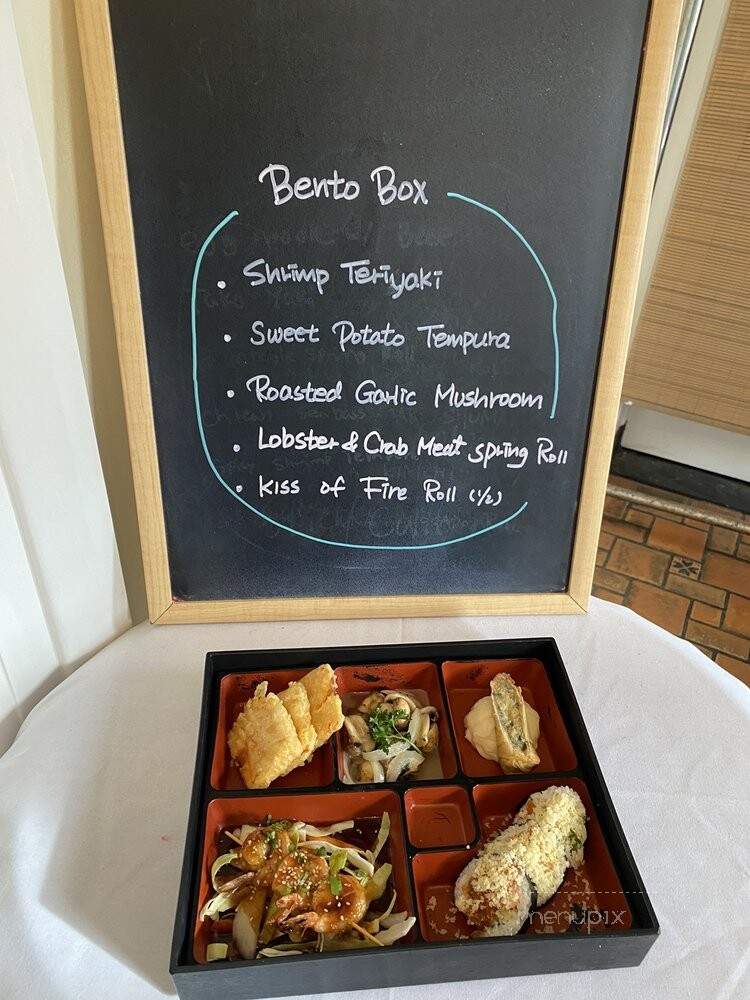 Bento Box
• Shrimp Teriyaki
• Sweet Potato Tempura
• Roasted Garlic Mushroom
• Lobster & Crab Meat Spring Roll
• Kiss of Fire Roll (1/2)
menupix